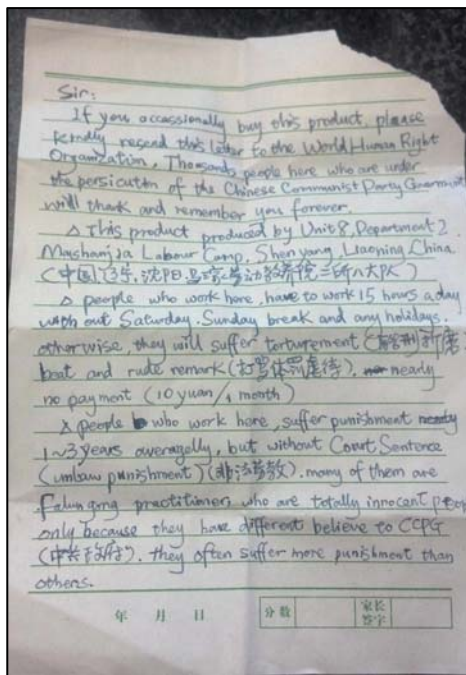 Sir:
If you occassionally buy this product, please
kindly resend this letter to the World Human Right
Organization. Thousands people here who are under
the persicuton of the Chinese Communist Party Government
will thank and remember you forever.
△ This product produced by Unit 8, Department 2
Mashanjia Labour Camp, Shenyang, Liaoning, China.
(中国, 辽宁, 沈阳, 马三家劳动教养院二所八大队)
△ people who work here, have to work 15 hours a day
with out Saturday, Sunday break and any holidays.
otherwise, they will suffer torturement
beat and rude remark (打骂体罚虐待). nearly
no payment (10 yuan/1 month)
△ people who work here, suffer punishment
1~3 years averagelly, but without Court Sentence
(unlaw punishment) (非法劳教). many of them are
Falungong practitioner, who are totally innocent people
only because they have different believe to CCPG
(中共政府). they often suffer more punishment than
others.
年 月 日 分数 家长签字